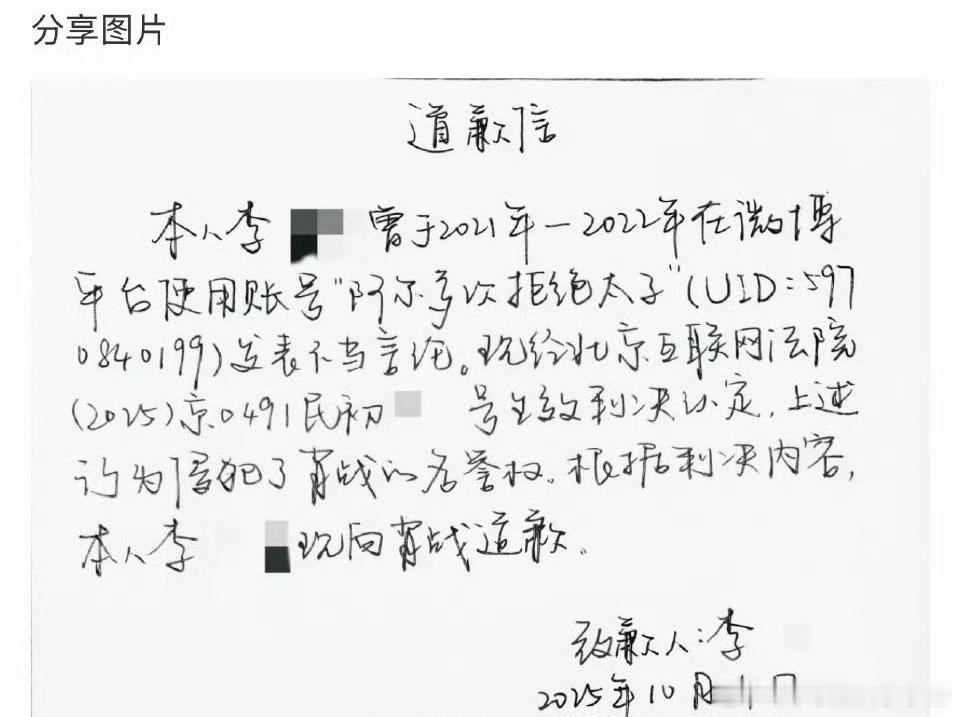 分享图片
道歉信
本人李 曾于2021年－2022年在微博
平台使用账号“阿尔多次拒绝太子”(UID:597
0840199)发表不当言论。现经北京互联网法院
(2025)京0491民初 号生效判决认定,上述
行为侵犯了肖战的名誉权。根据判决内容,
本人李 现向肖战道歉。
致歉人:李
2025年10月